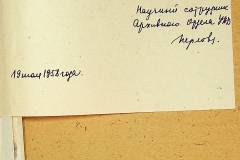 Научный сотрудник
Архивного Отдела УВД
Перлов.
19 мая 1958 года.